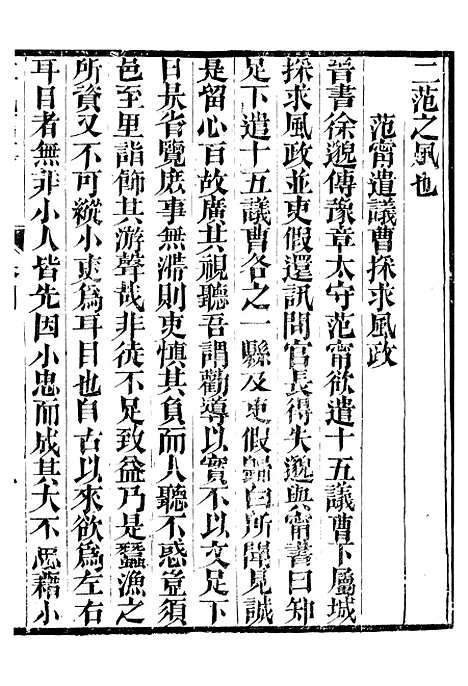 二范之風也
范甯遣議曹採求風政
晉書徐邈傳豫章太守范甯欲遣十五議曹下屬城
採求風政並吏假還訊問官長得失邈與甯書曰知
足下遣十五議曹各之一縣及吏假歸白所聞見誠
是留心百故廣其視聽吾謂勸導以實不以文足下
日昃省覽庶事無滯則吏慎其負而人聽不惑豈須
邑至里詣飾其游聲哉非徒不足致益乃是蠶漁之
所資又不可縱小吏爲耳目也自古以來欲爲左右
耳目者無非小人皆先因小忠而成其大不忠藉小